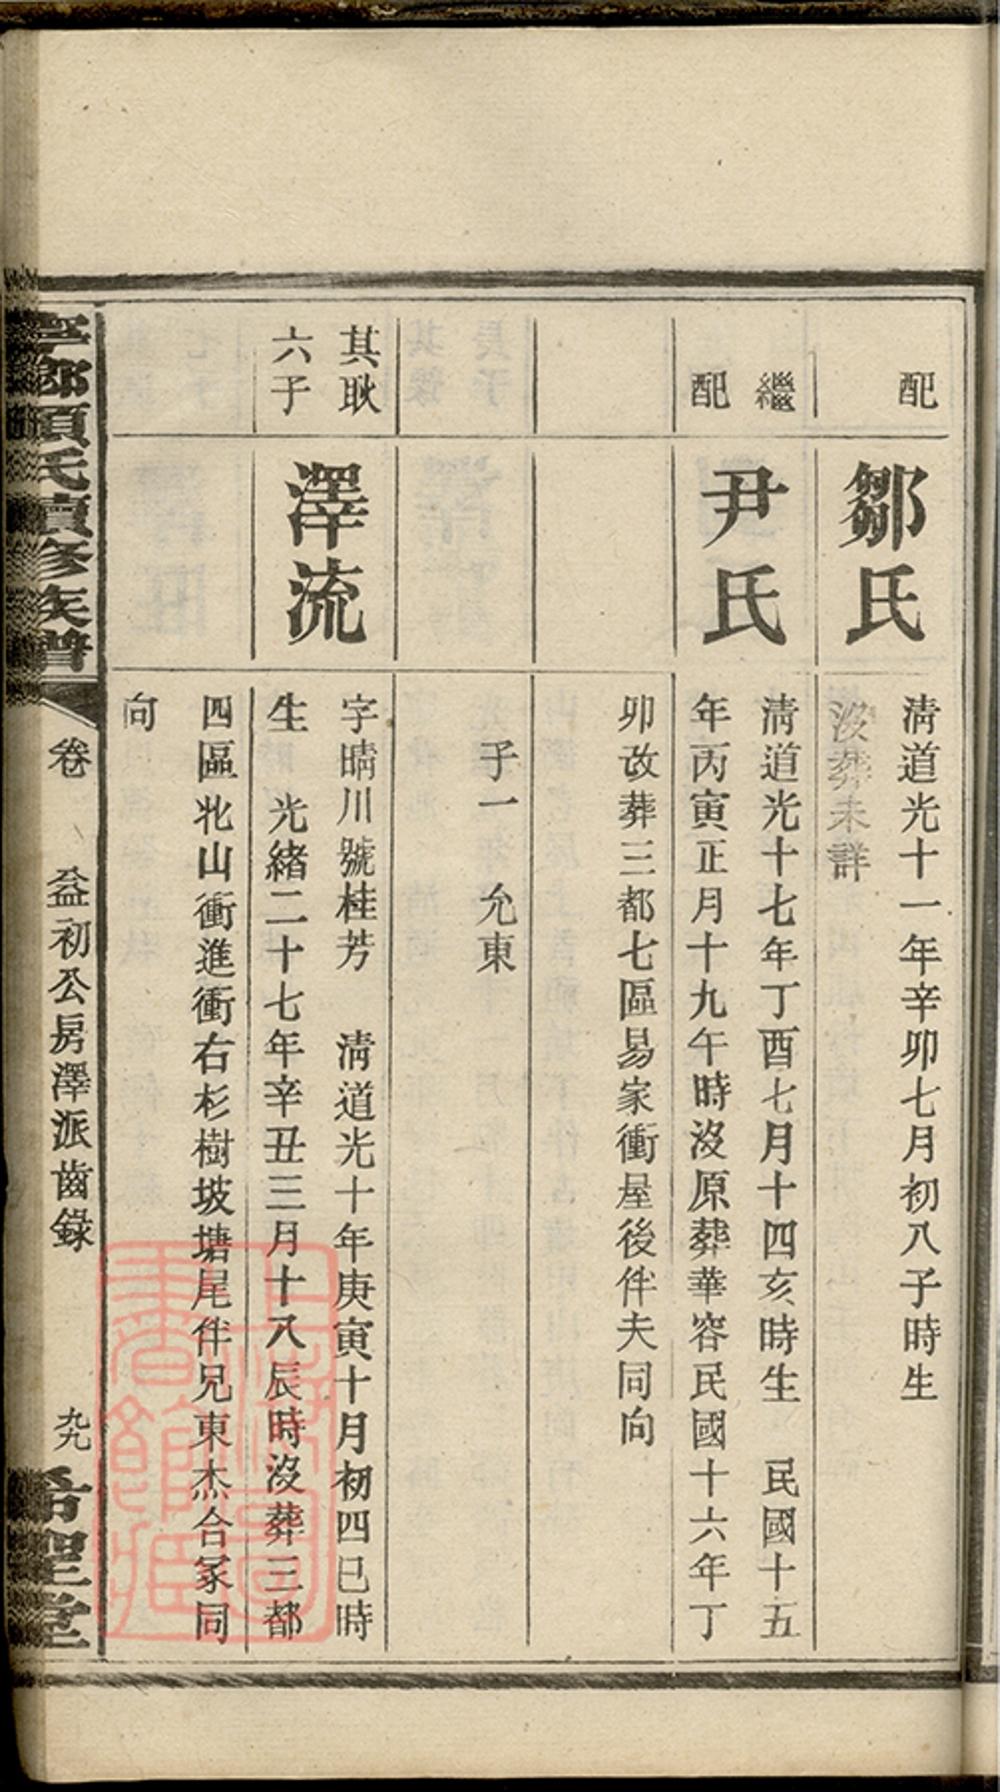 配
鄒氏
清道光十一年辛卯七月初八子時生
沒葬未詳
繼配
尹氏
清道光十七年丁酉七月十四亥時生 民國十五
年丙寅正月十九午時沒原葬華容民國十六年丁
卯改葬三都七區易家衝屋後伴夫同向
子一 允東
其耿
六子
澤流
字晴川號桂芳 清道光十年庚寅十月初四巳時
生 光緒二十七年辛丑三月十八辰時沒葬三都
四區牝山衝進衝右杉樹坡塘尾伴兄東杰合冢同
向
項氏續修族譜
卷 益初公房澤派齒錄 九九
希聖堂
上海圖書館藏